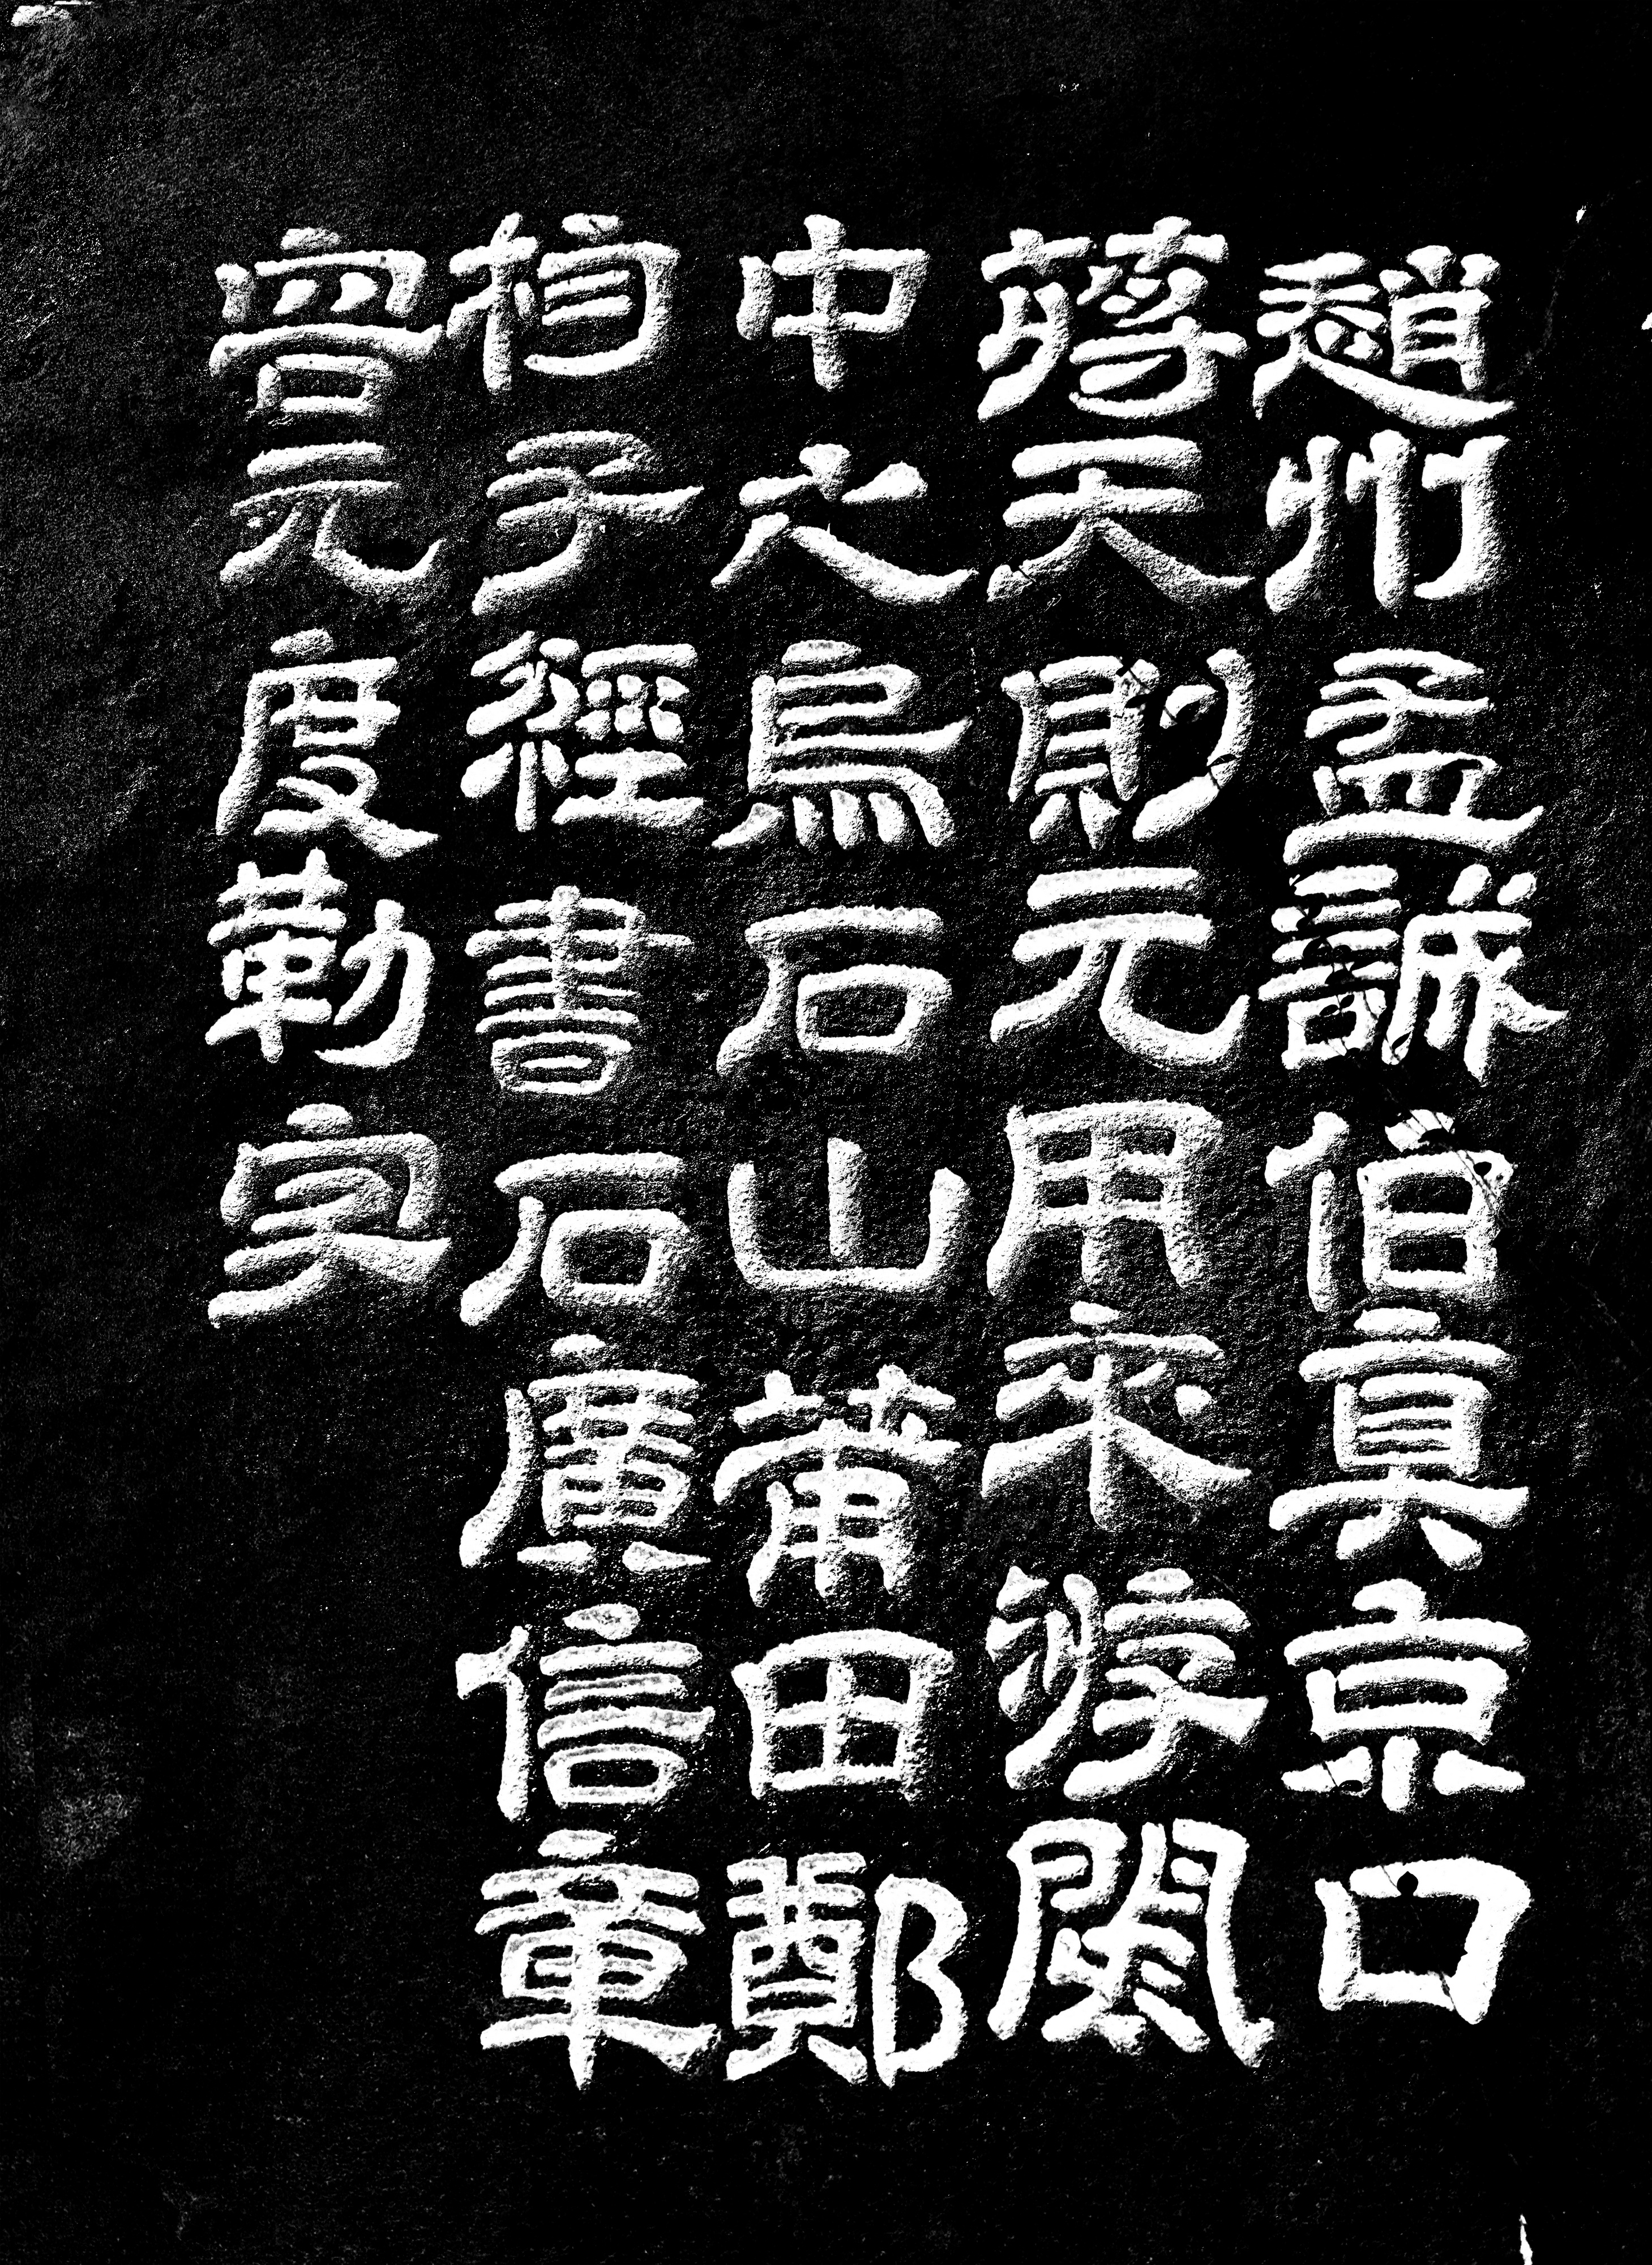 趙州孟誠伯真京口
蔣天則元用來游閩
中之烏石山莆田鄭
杓子經書石廣信章
曾元度勒字